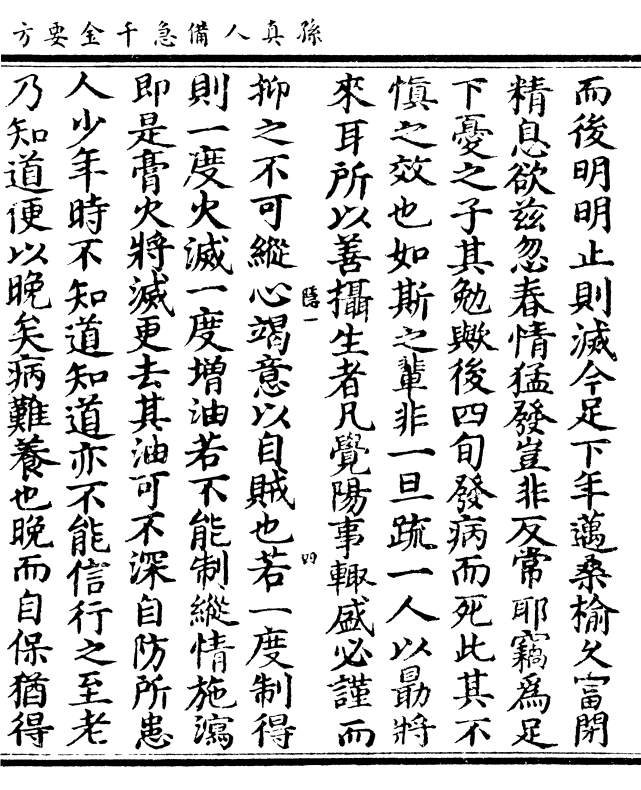 孫真人備急千金要方
而後明明止則滅今足下年邁桑榆久當閉
精息欲茲忽春情猛發豈非反常耶竊為足
下憂之子其勉歟後四旬發病而死此其不
慎之效也如斯之輩非一旦疏一人以勗將
來耳所以善攝生者凡覺陽事輒盛必謹而
隱一 四
抑之不可縱心竭意以自賊也若一度制得
則一度火滅一度增油若不能制縱情施瀉
即是膏火將滅更去其油可不深自防所患
人少年時不知道知道亦不能信行之至老
乃知道便以晚矣病難養也晚而自保猶得